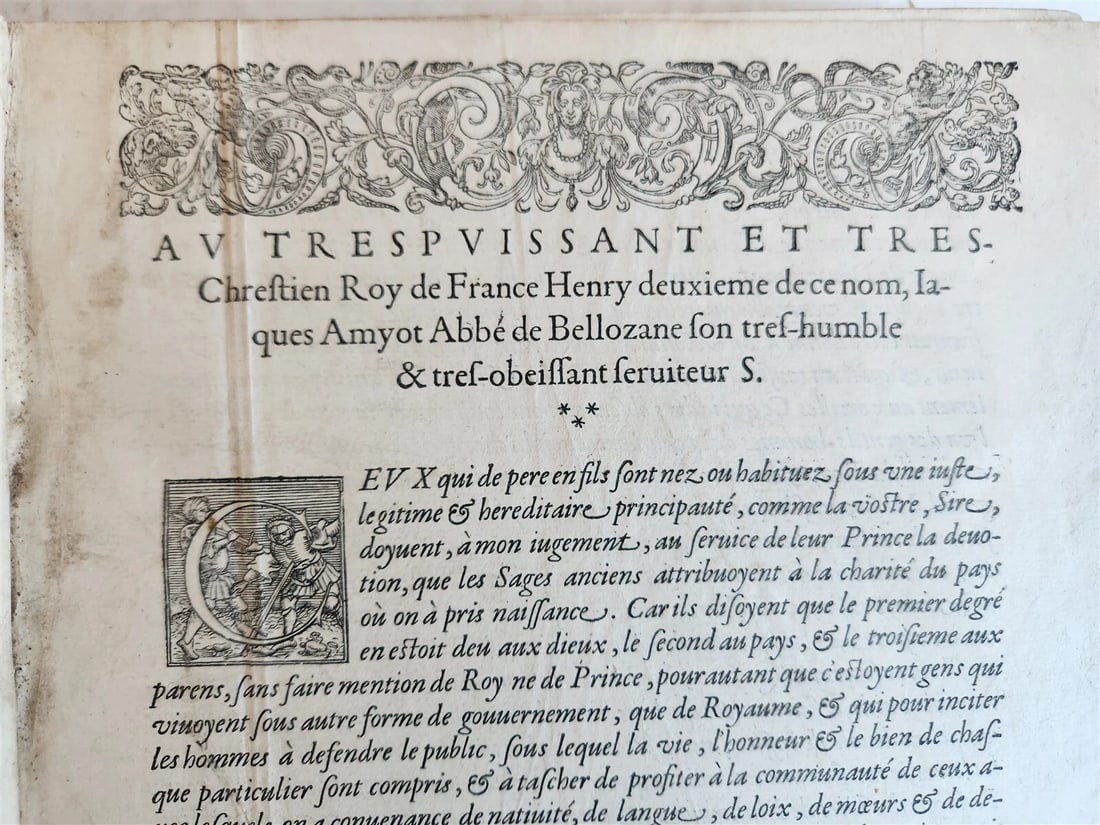 AV TRESPVISSANT ET TRES-
Chreſtien Roy de France Henry deuxieme de ce nom, Ia-
ques Amyot Abbé de Bellozane ſon treſ-humble
& treſ-obeiſſant ſeruiteur S.
***
CEVX qui de pere en fils ſont nez, ou habituez ſous vne iuſte,
legitime & hereditaire principauté, comme la voſtre, Sire,
doyuent, à mon iugement, au ſeruice de leur Prince la deuo-
tion, que les Sages anciens attribuoyent à la charité du pays
où on à pris naiſſance. Car ils diſoyent que le premier degré
en eſtoit deu aux dieux, le ſecond au pays, & le troiſieme aux
parens, ſans faire mention de Roy ne de Prince, pourautant que c'eſtoyent gens qui
viuoyent ſous autre forme de gouuernement, que de Royaume, & qui pour inciter
les hommes à defendre le public, ſous lequel la vie, l'honneur & le bien de chaſ-
que particulier ſont compris, & à taſcher de profiter à la communauté de ceux a-
uec leſquels on a conuenance de natiuité, de langue, de loix, de mœurs & de de-